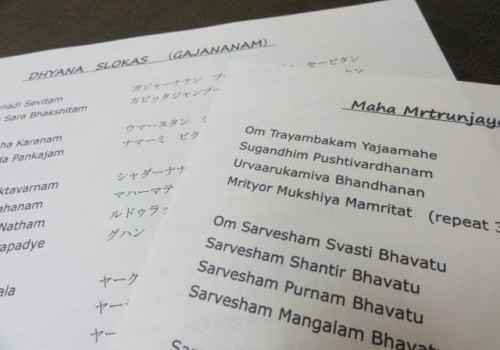 DHYANA SLOKAS (GAJANANAM)
nadi Sevitam
Sara Bhakshitam
ha Karanam
Pankajam
ktavarnam
ahanam
Natham
apadye
ala
ガジャーナナン
カピッタジャンブー
ウマースタン
ナマーミ
シャダーナナ
マハーマテ
ルドゥラ
グハン
ヤーク
ヤー
ヤー
セービタン
Maha Mrtrunjaya
Om Trayambakam Yajaamahe
Sugandhim Pushtivardhanam
Urvaarukamiva Bhandhanan
Mrityor Mukshiya Mamritat (repeat 3
Om Sarvesham Svasti Bhavatu
Sarvesham Shantir Bhavatu
Sarvesham Purnam Bhavatu
Sarvesham Mangalam Bhavatu